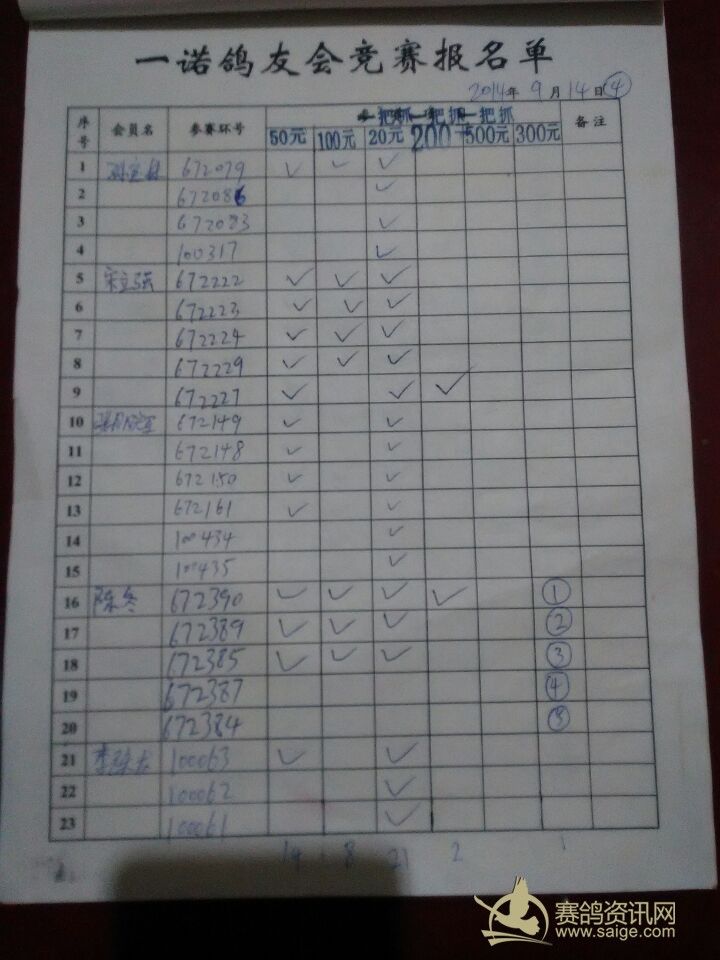 一诺鸽友会竞赛报名单
2014年 9月14日④
序号 会员名 参赛环号 50元 100元 一把抓 20元 一把抓 200 一把抓 500元 300元 备注
1 672079 ✓ ✓ ✓
2 672086 ✓
3 672083 ✓
4 100317 ✓
5 宋立强 672222 ✓ ✓ ✓
6 672223 ✓ ✓ ✓
7 672224 ✓ ✓ ✓
8 672229 ✓ ✓ ✓
9 672227 ✓ ✓ ✓
10 672149 ✓ ✓
11 672148 ✓ ✓
12 672150 ✓ ✓
13 672161 ✓ ✓
14 100434 ✓
15 100435 ✓
16 陈冬 672390 ✓ ✓ ✓ ✓ ①
17 672389 ✓ ✓ ✓ ②
18 672385 ✓ ✓ ✓ ③
19 672387 ④
20 672384
21 100063 ✓ ✓
22 100062 ✓
23 100061 ✓
14 8 21 2 1
赛鸽资讯网
www.saige.com